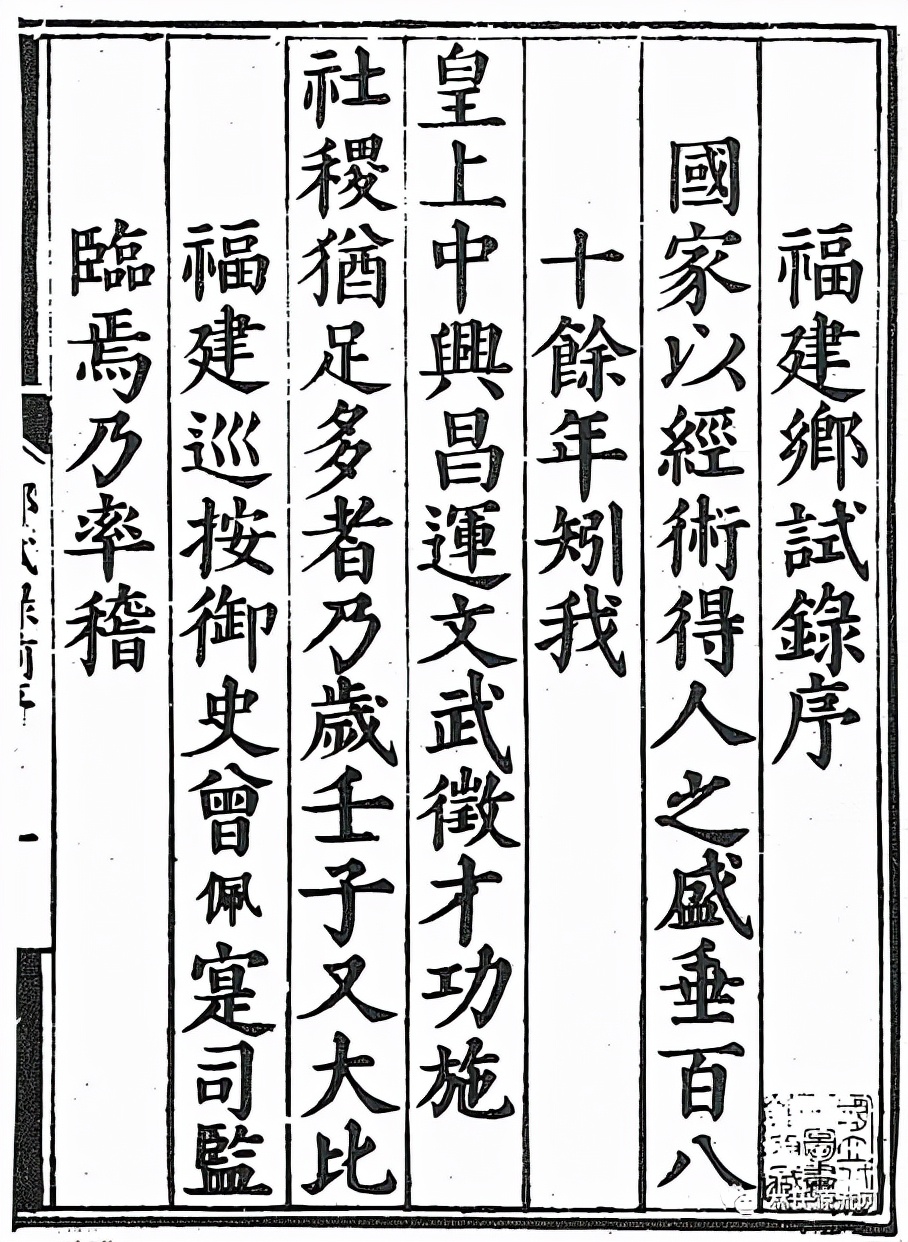 福建鄉試錄序
國家以經術得人之盛垂百八
十餘年矧我
皇上中興昌運文武徵才功施
社稷猶足多者乃歲壬子又大比
福建巡按御史曾佩寔司監
臨焉乃率稽
一